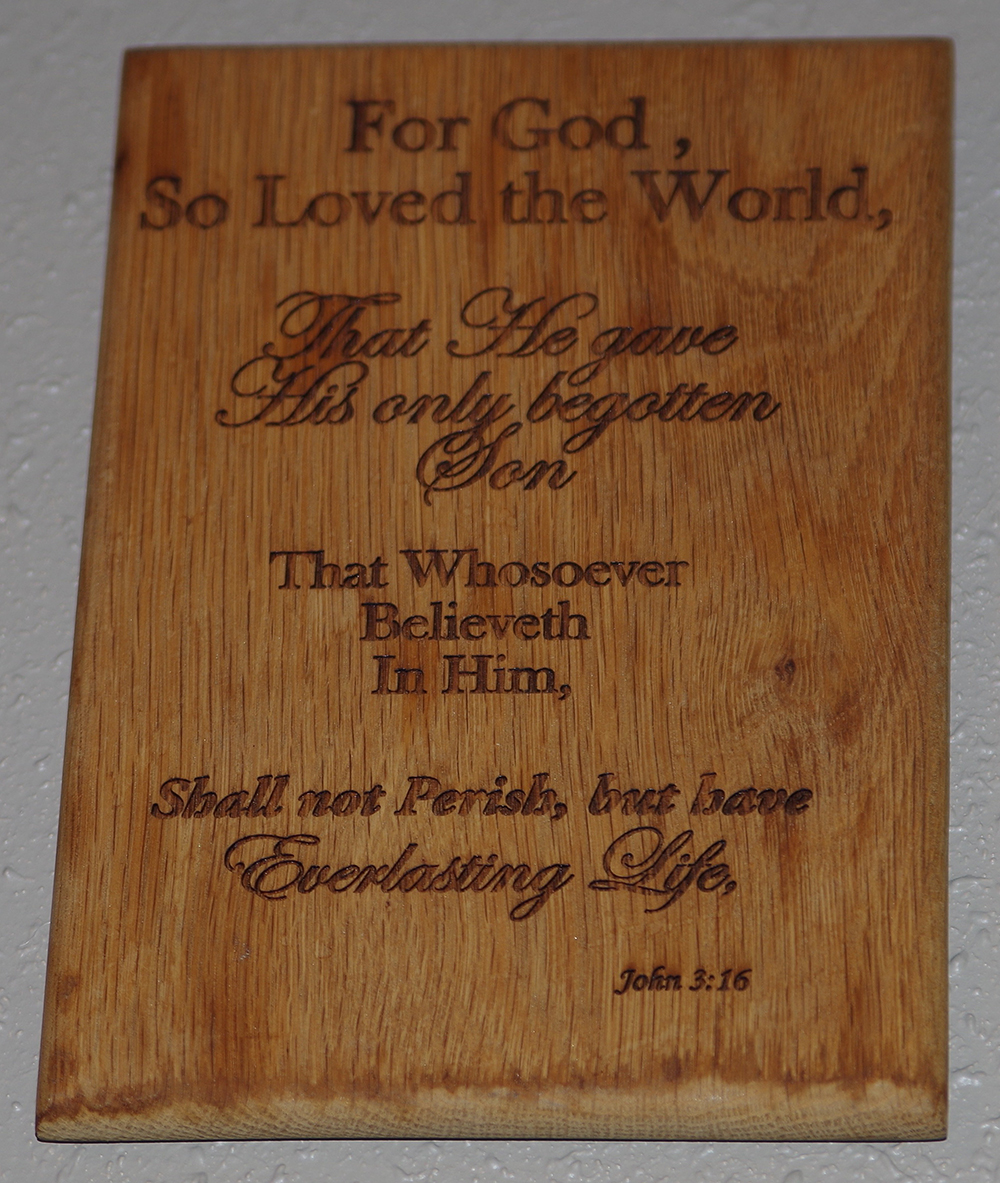 For God ,
So Loved the World.,
That He gave
His only begotten
Son
That Whosoever
Believeth
In Him,
Shall not Perish, but have
Everlasting Life,
John 3:16